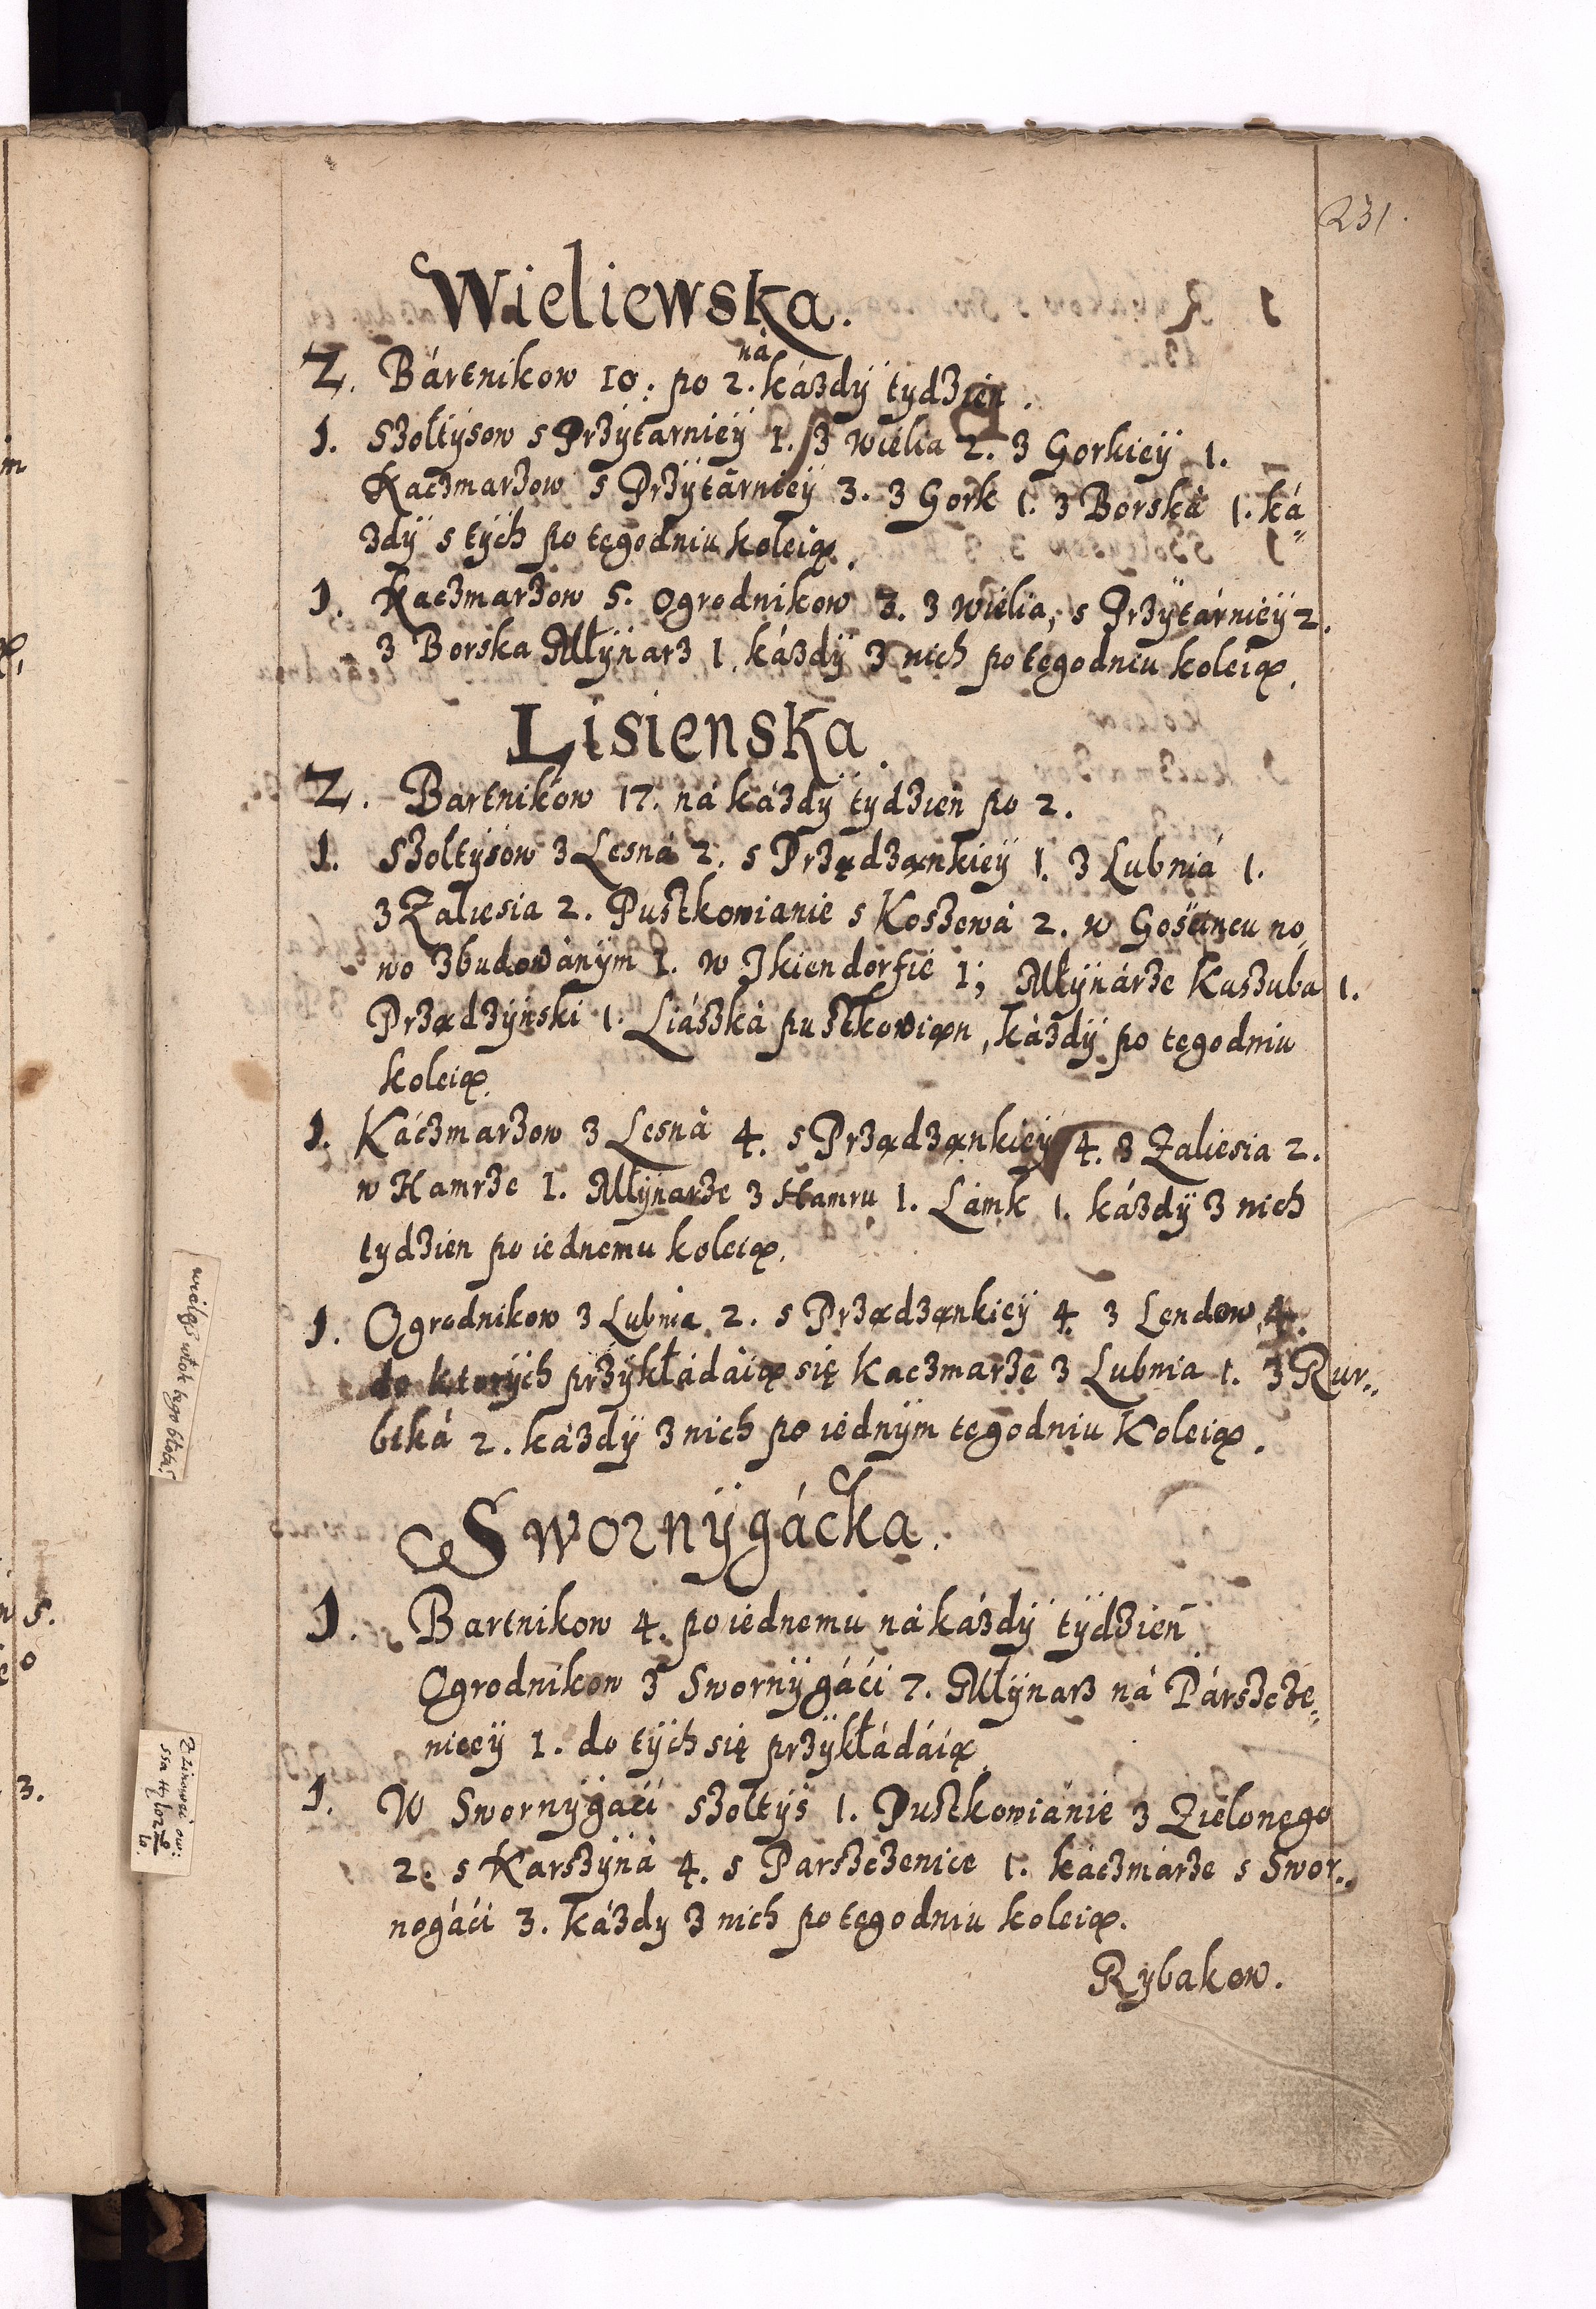 231.
Wieliewska.
2. Bártnikow 10. po 2. ná káżdÿ tydzien.
1. Szołtysow s Przÿtarnieÿ 1. z Wielia 2. z Gorkieÿ 1.
Kaczmarzow s Przÿtárnieÿ 3. z Gork 1. z Borská 1. ká„
zdÿ s tÿch po tęgodniu koleią.
1. Kaczmarzow 5. Ogrodnikow 3. z Wielia, s Przÿtárnieÿ 2.
z Borska Młÿnarz 1. káżdÿ z nich po tęgodniu koleią.
Lisienska.
2. Bartnikow 17. ná káżdÿ tÿdzień po 2.
1. Szołtysow z Lesná 2. s Prządzankieÿ 1. z Lubniá 1.
z Zaliesia 2. Pustkowianie s Koszewá 2. w Gościncu no„
wo zbudowánÿm 1. w Ikiendorfie 1; Młÿnárze Kaszuba 1.
Prządzÿnski 1. Liászká pustkowiąn, káżdÿ po tęgodniu
koleią.
1. Káczmarzow z Lesná 4. s Prządzankieÿ 4. z Zaliesia 2.
w Hamrze 1. Młÿnarze z Hamru 1. Lámk 1. káżdÿ z nich
tydzien po iednemu koleią.
1. Ogrodnikow z Lubnia 2. s Prządzankieÿ 4. z Lendow 4.
do ktorÿch przÿkłádáią się kaczmarze z Lubnia 1. z Rur„
bská 2. káżdÿ z nich po iednÿm tęgodniu Koleią.
Swornÿgácka.
1. Bartnikow 4. po iednemu ná káżdÿ tÿdzień
Ogrodnikow z Swornÿgáći 7. Młÿnarz ná Párszcze„
nicÿ 1. do tÿch się przÿkłádáią.
1. W Swornÿgáći szołtÿs 1. Pustkowiánie z Zielonego
2. s Karszÿná 4. s Parszczenice 1. káczmárze s Swor„
nogáći 3. káżdy z nich po tęgodniu koleią.
Rybakow.